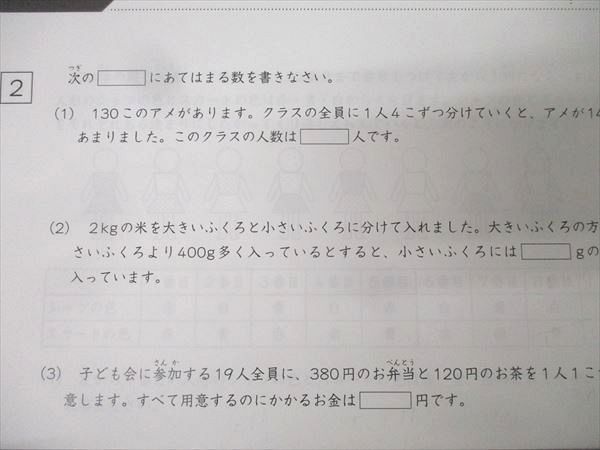 つぎ
2 次の□にあてはまる数を書きなさい。
(1) 130このアメがあります。クラスの全員に1人4こずつ分けていくと、アメが14
あまりました。このクラスの人数は□人です。
(2) 2kgの米を大きいふくろと小さいふくろに分けて入れました。大きいふくろの方
さいふくろより400g多く入っているとすると、小さいふくろには□gの
入っています。
さんか べんとう
(3) 子ども会に参加する19人全員に、380円のお弁当と120円のお茶を1人1こ
意します。すべて用意するのにかかるお金は□円です。